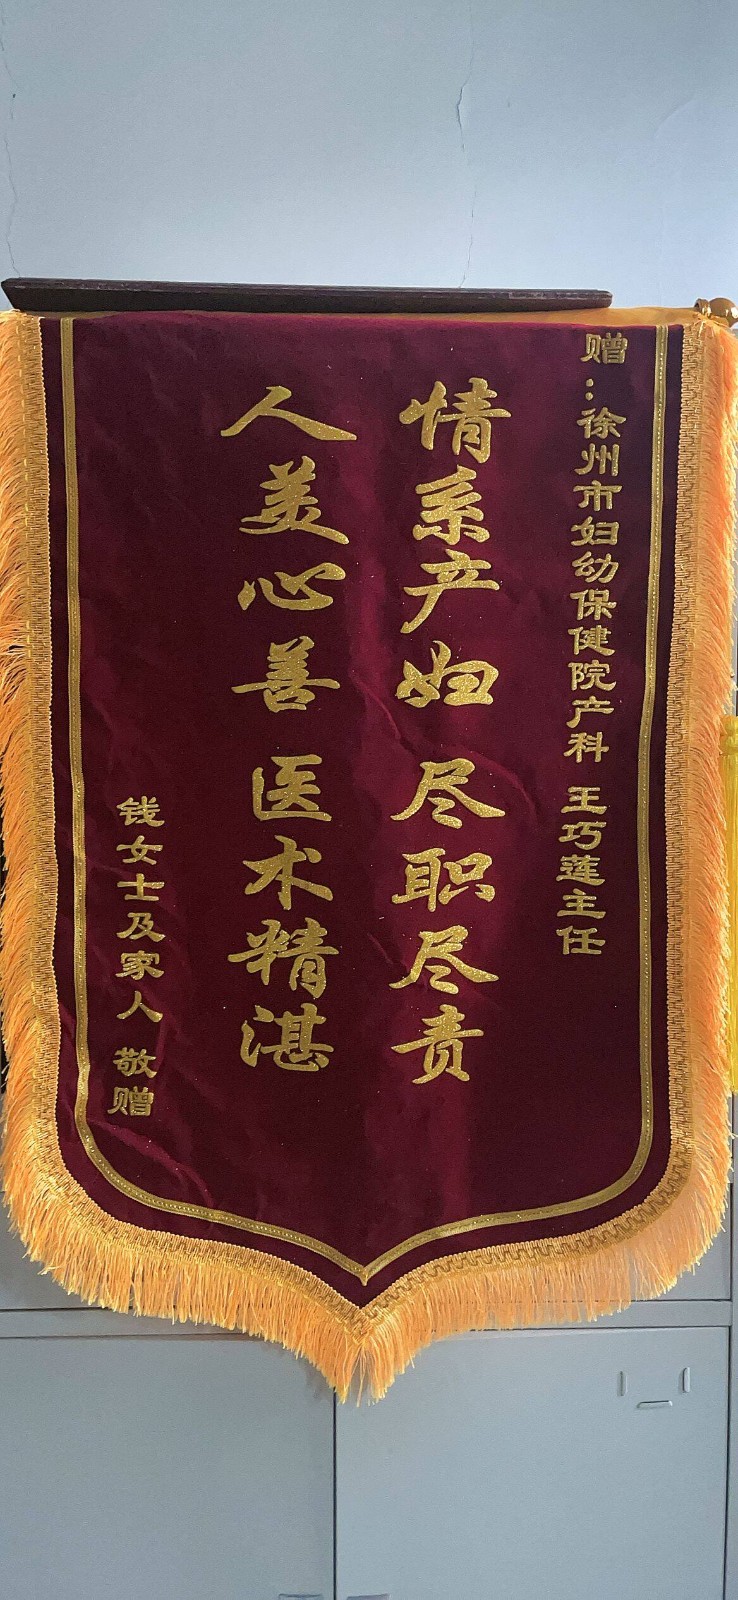 赠：徐州市妇幼保健院产科 王巧莲主任
情系产妇 尽职尽责
人美心善 医术精湛
钱女士及家人 敬赠